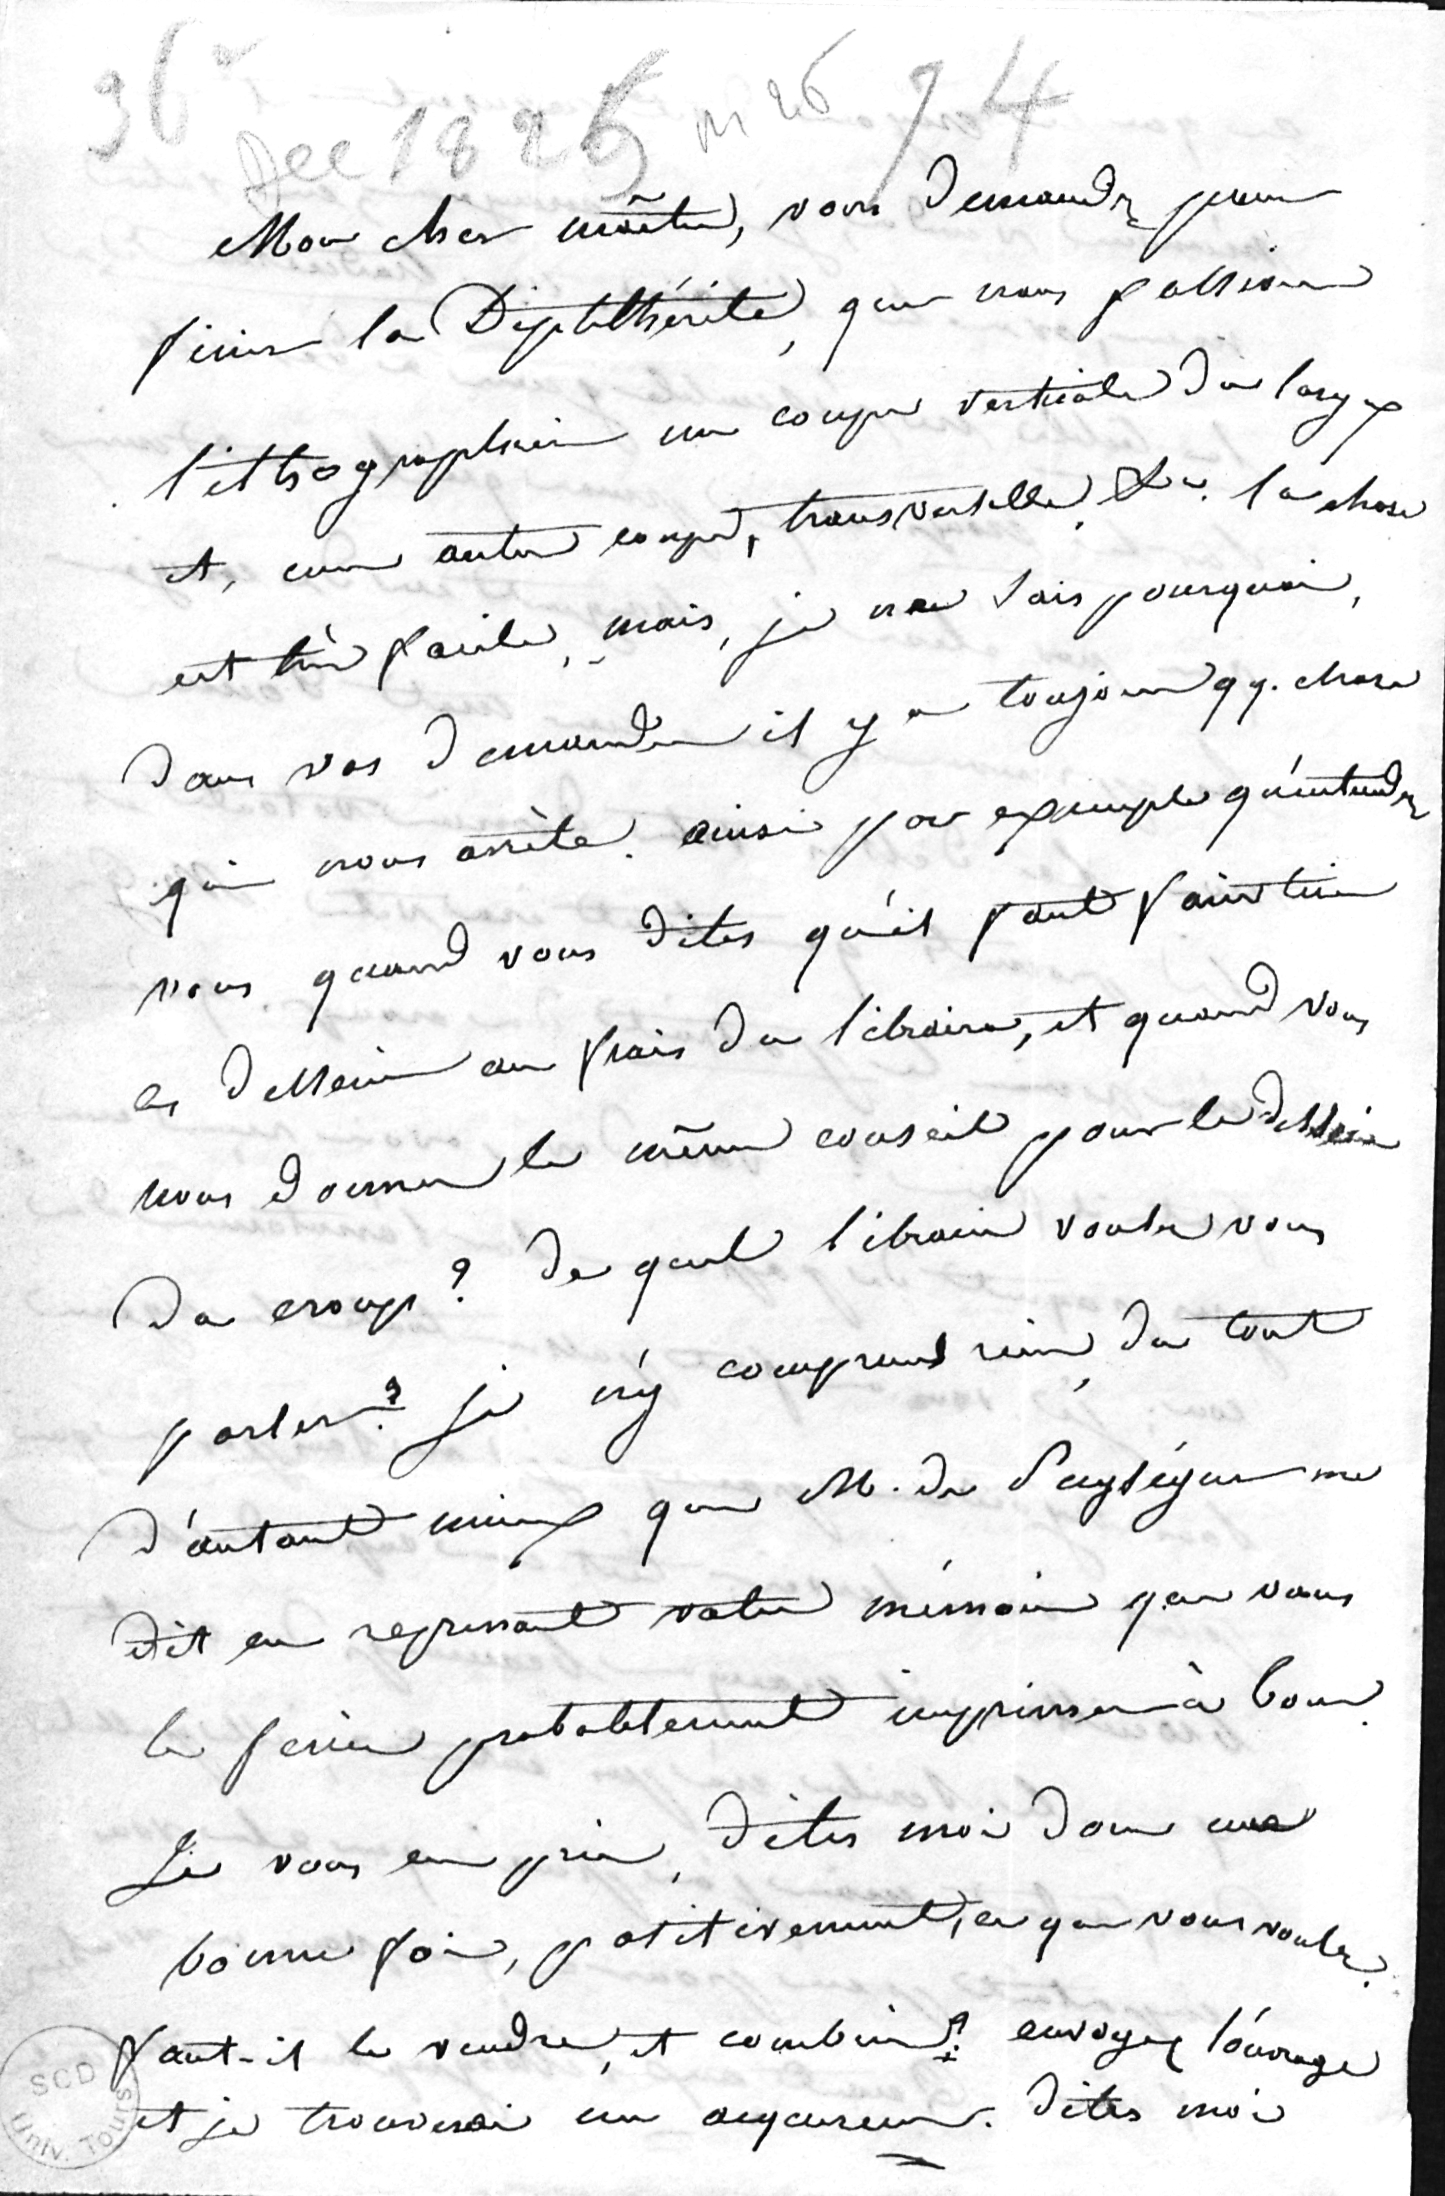 36
Dec 1825 m 26 74
Mon cher maître, vous demandez pour
finir la Diphthérite, que nous fassions
lithographier une coupe verticale du larynx
et, une autre coupe, transversalle, &a. la chose
est très facile, mais, je ne sais pourquoi,
dans vos demandes il y a toujours qq. chose
qui nous arrête. ainsi par exemple qu'entendez
vous quand vous dites qu'il faut faire tirer
les dessins au frais du libraire, et quand vous
nous donner le même conseil pour le dessin
du croup? de quel libraire voulez vous
parler? je n'y comprends rien du tout
d'autant mieux que M. de Puységur me
dit en reprenant votre mémoire que vous
le feriez probablement imprimer à Tours.
Je vous en prie, dites moi donc une
bonne fois, positivement, ce que vous voulez.
faut-il le vendre, et combien? envoyez l'ouvrage
et je trouverai un acquereur. dites moi
SCD
Univ. Tours